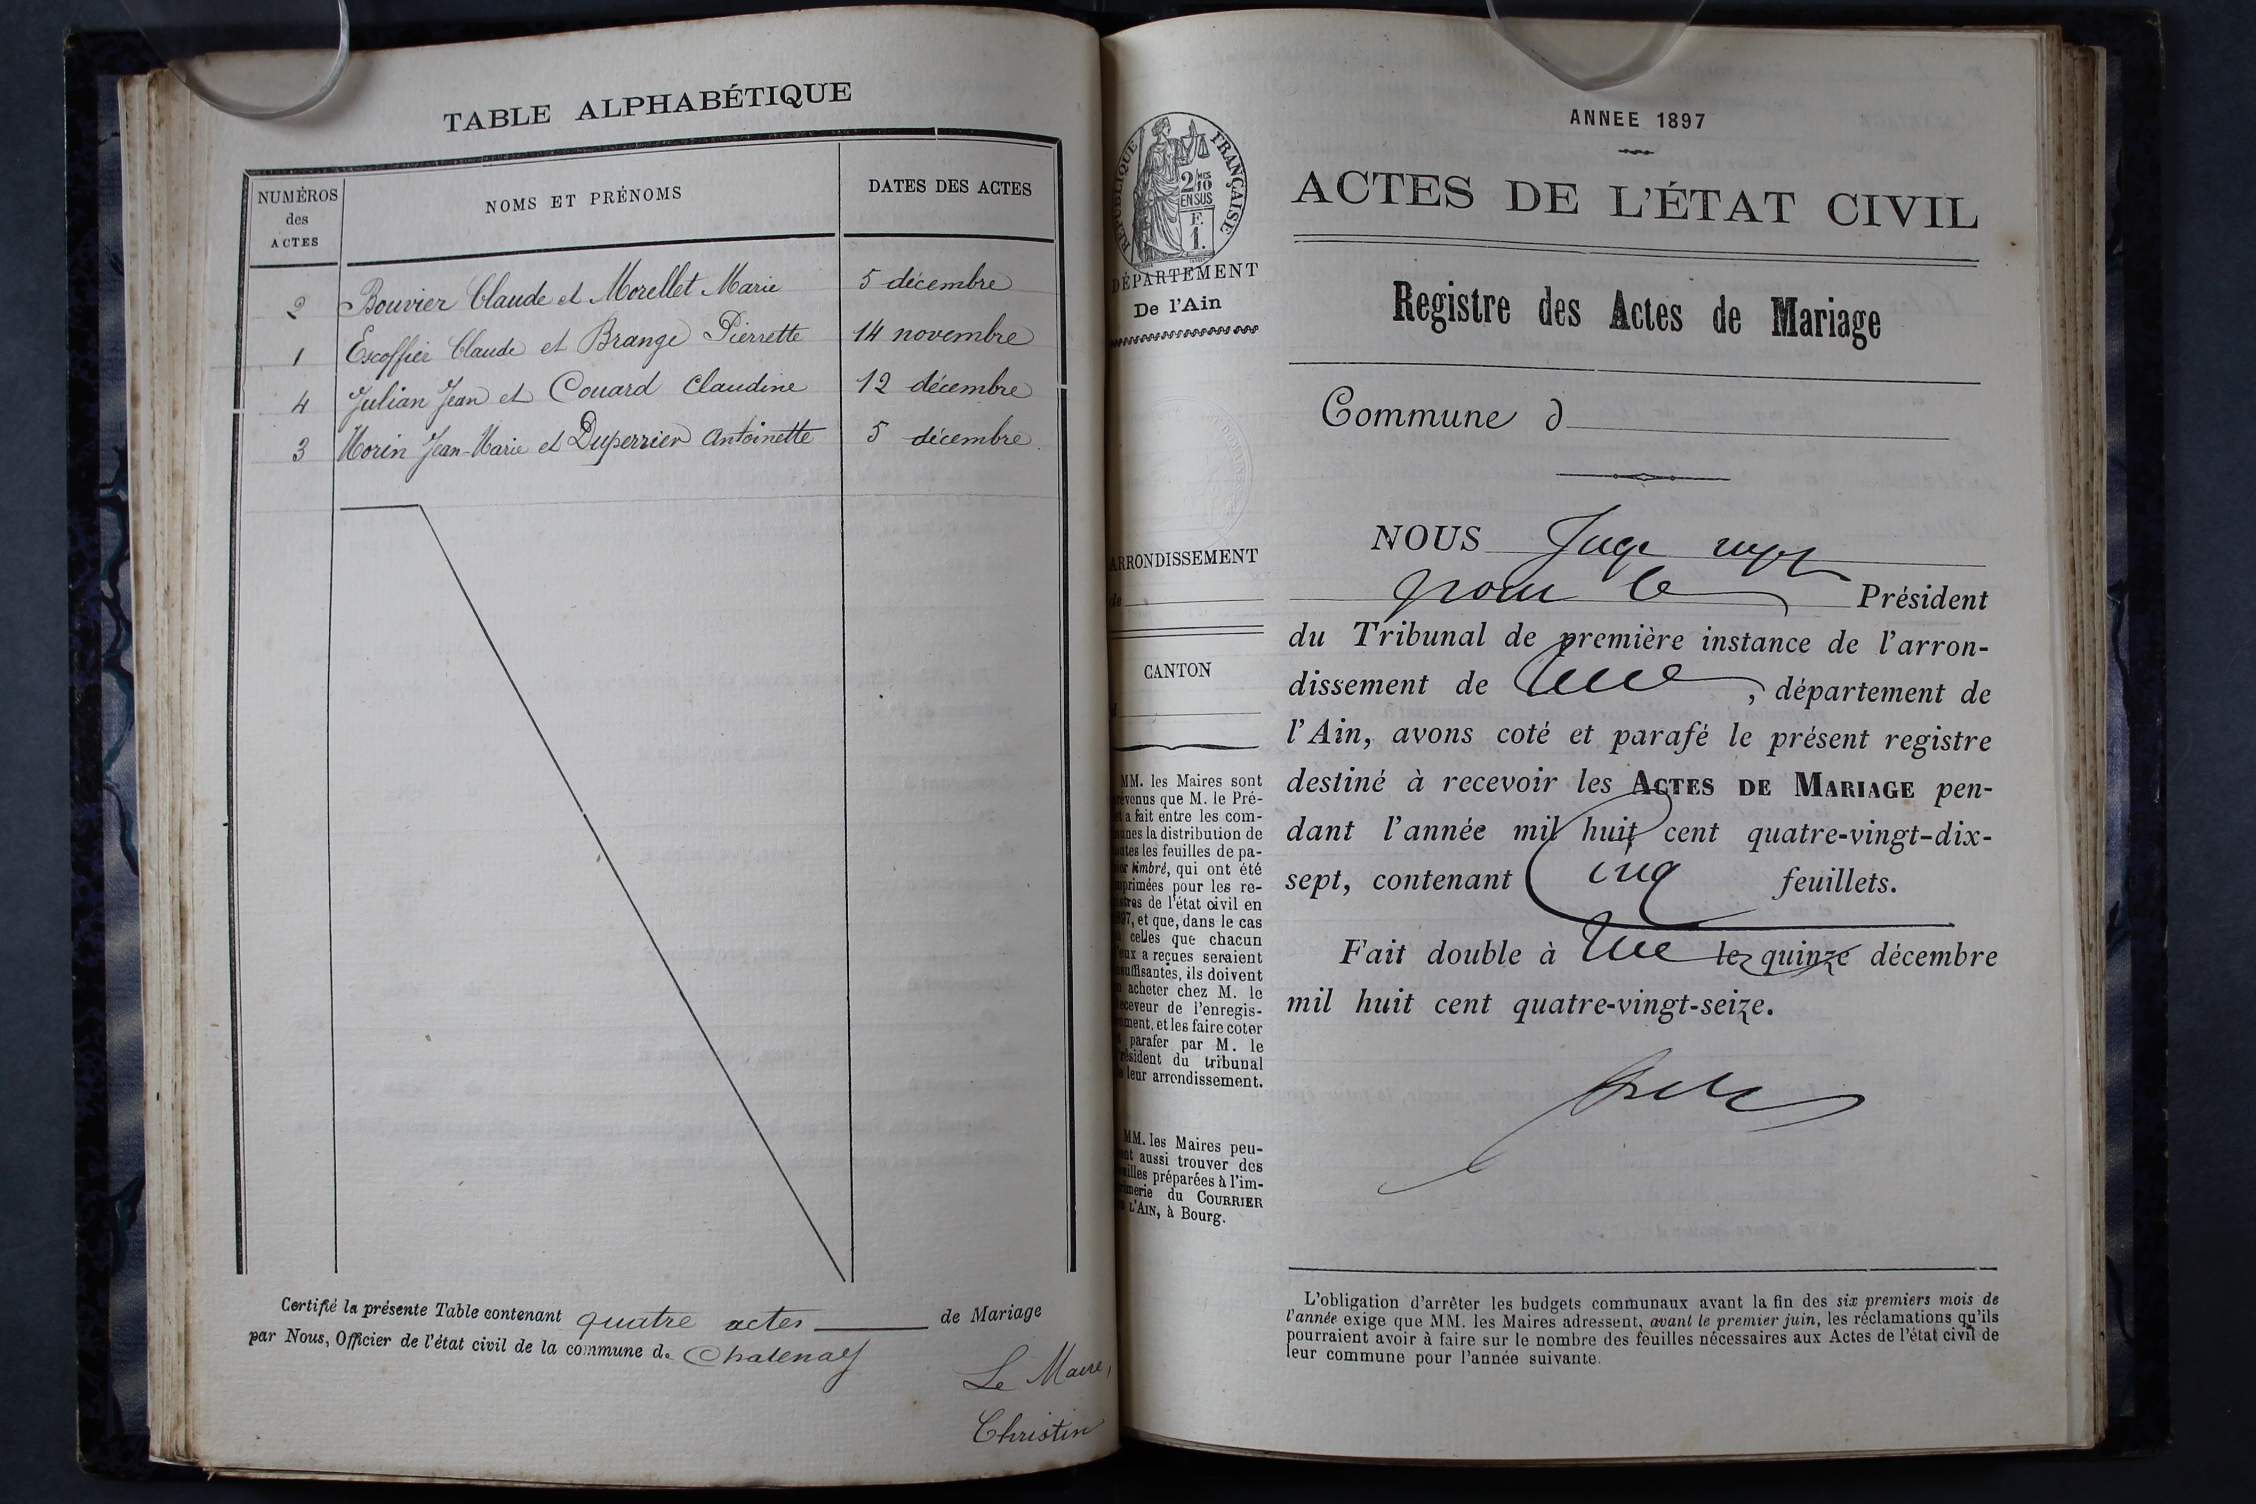 TABLE ALPHABÉTIQUE
NUMÉROS des ACTES
NOMS ET PRÉNOMS
DATES DES ACTES
2 Bouvier Claude et Morellet Marie 5 décembre
1 Escoffier Claude et Brange Pierrette 14 novembre
4 Julian Jean et Couard Claudine 12 décembre
3 Morin Jean-Marie et Duperrier Antoinette 5 décembre
Certifié la présente Table contenant quatre actes de Mariage
par Nous, Officier de l'état civil de la commune de Chatenay
Le Maire,
Christin
RÉPUBLIQUE FRANÇAISE
2/10 EN SUS
F. 1.
DÉPARTEMENT
De l'Ain
ARRONDISSEMENT
de
CANTON
MM. les Maires sont
prévenus que M. le Pré-
a fait entre les com-
munes la distribution de
toutes les feuilles de pa-
pier timbré, qui ont été
imprimées pour les re-
gistres de l'état civil en
1897, et que, dans le cas
celles que chacun
d'eux a reçues seraient
insuffisantes, ils doivent
en acheter chez M. le
receveur de l'enregis-
trement, et les faire coter
parafer par M. le
Président du tribunal
de leur arrondissement.
MM. les Maires peu-
vent aussi trouver des
feuilles préparées à l'im-
primerie du COURRIER
DE L'AIN, à Bourg.
ANNEE 1897
ACTES DE L'ÉTAT CIVIL
Registre des Actes de Mariage
Commune d
NOUS Juge
pour le Président
du Tribunal de première instance de l'arron-
dissement de , département de
l'Ain, avons coté et parafé le présent registre
destiné à recevoir les ACTES DE MARIAGE pen-
dant l'année mil huit cent quatre-vingt-dix-
sept, contenant Cinq feuillets.
Fait double à le quinze décembre
mil huit cent quatre-vingt-seize.
L'obligation d'arrêter les budgets communaux avant la fin des six premiers mois de
l'année exige que MM. les Maires adressent, avant le premier juin, les réclamations qu'ils
pourraient avoir à faire sur le nombre des feuilles nécessaires aux Actes de l'état civil de
leur commune pour l'année suivante.